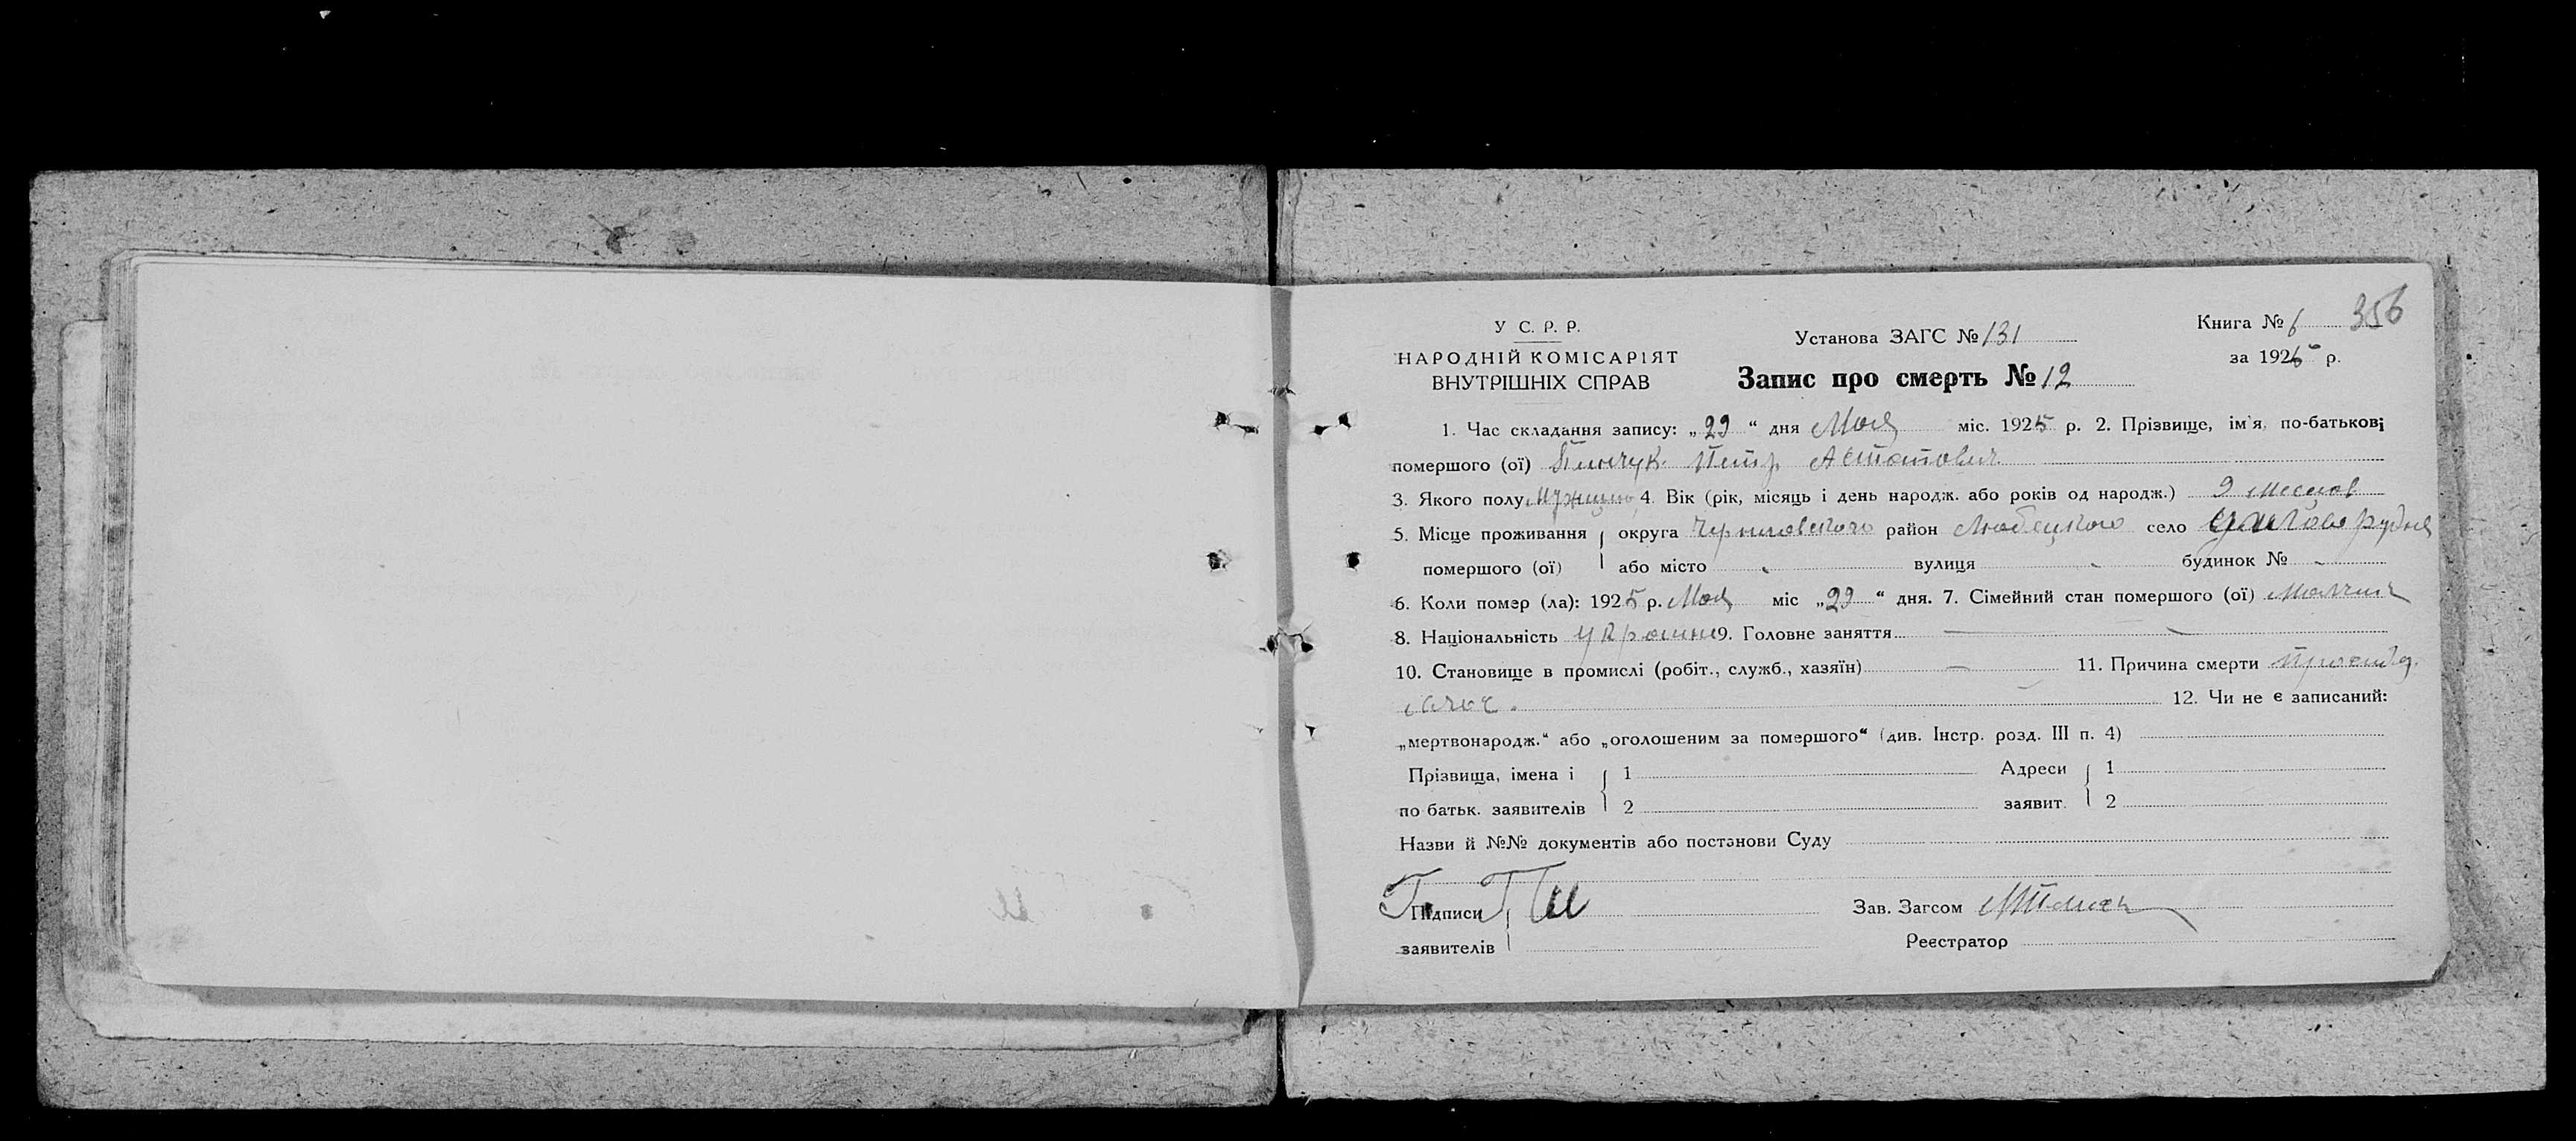 356
У С. Р. Р.
НАРОДНІЙ КОМІСАРІЯТ
ВНУТРІШНІХ СПРАВ
Установа ЗАГС № 131
Запис про смерть № 12
Книга № 6
за 1925 р.
1. Час складання запису: „29“ дня Мая міс. 1925 р. 2. Прізвище, ім'я, по-батькові
помершого (ої) Пинчук Петр Астапович
3. Якого полу Мужчина 4. Вік (рік, місяць і день народж. або років од народж.) 9
5. Місце проживання округа Черниговского район Любецкого село Рудня
помершого (ої) або місто вулиця будинок №
6. Коли помер (ла): 1925 р. Мая міс „29“ дня. 7. Сімейний стан помершого (ої)
8. Національність 9. Головне заняття
10. Становище в промислі (робіт., служб., хазяїн) — 11. Причина смерти
12. Чи не є записаний:
„мертвонародж.“ або „оголошеним за помершого“ (див. Інстр. розд. III п. 4)
Прізвища, імена і 1 Адреси 1
по батьк. заявителів 2 заявит. 2
Назви й №№ документів або постанови Суду
Підписи Зав. Загсом
заявителів Реєстратор